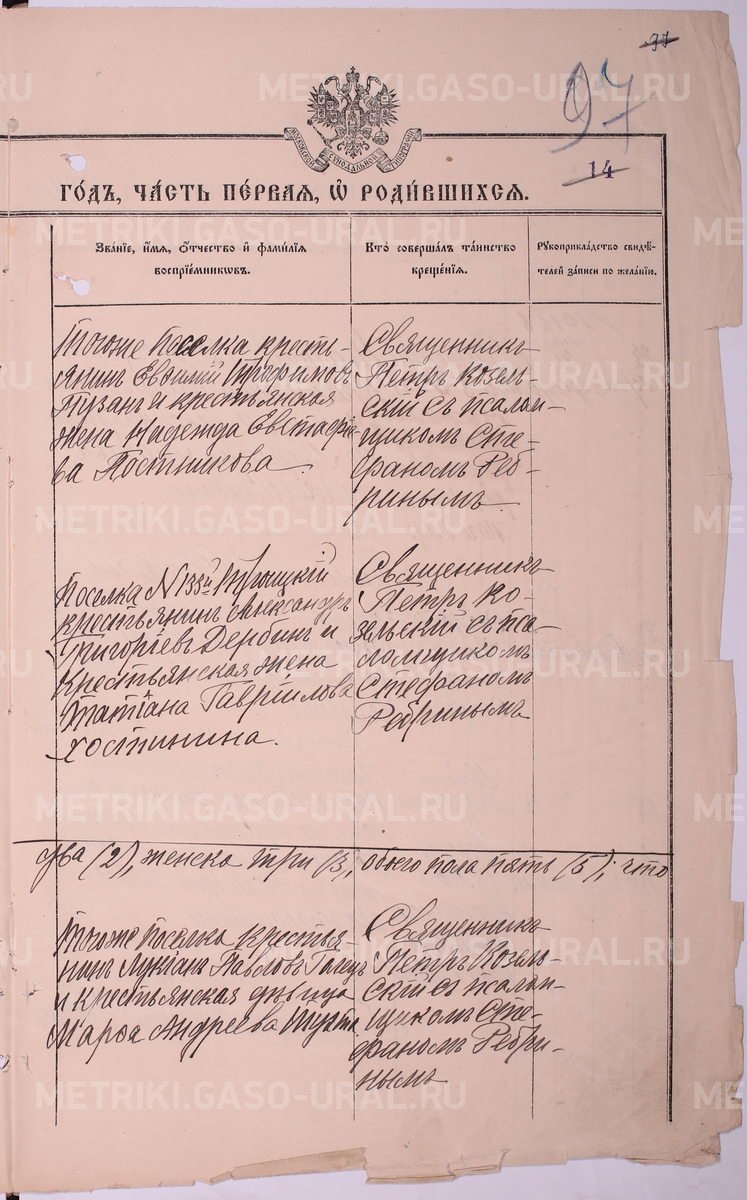 37
97
14
МОСКОВСКОЙ СѴНОДАЛЬНОЙ ТИПОГРАФ
ГО́ДЪ, ЧА́СТЬ ПЕ́РВАЯ, Ѽ РОДИ́ВШИХСЯ.
Зва́ніе, и́мя, о́тчество и̂ фами́лія
воспріе́мниковъ.
Кто̀ соверша́лъ та́инство
креще́нія.
Рукоприкла́дство свидѣ́-
телей за́писи по жела́нію.
Тогоже поселка кресть-
янинъ Евѳимій Трофимовъ
Пузанъ и крестьянская
жена Надежда Евстафіе-
ва Постникова.
Священникъ
Петръ Козель-
скій съ псалом-
щикомъ Сте-
фаномъ Реб-
ринымъ
Поселка N 133й Троицкій
крестьянинъ Александръ
Григоріевъ Дербинъ и
Крестьянская жена
Татіана Гавріилова
Хостинина.
Священникъ
Петръ Ко-
зельскій съ пса-
ломщикомъ
Стефаномъ
Ребринымъ
два (2), женска три (3), обоего пола пять (5); что
Тогоже поселка крестья-
нинъ Лукіанъ Павловъ
и крестьянская дѣвица
Марѳа Андреева
Священникъ
Петръ Козель-
скій съ псалом-
щикомъ Сте-
фаномъ Ребри-
нымъ
METRIKI.GASO-URAL.RU